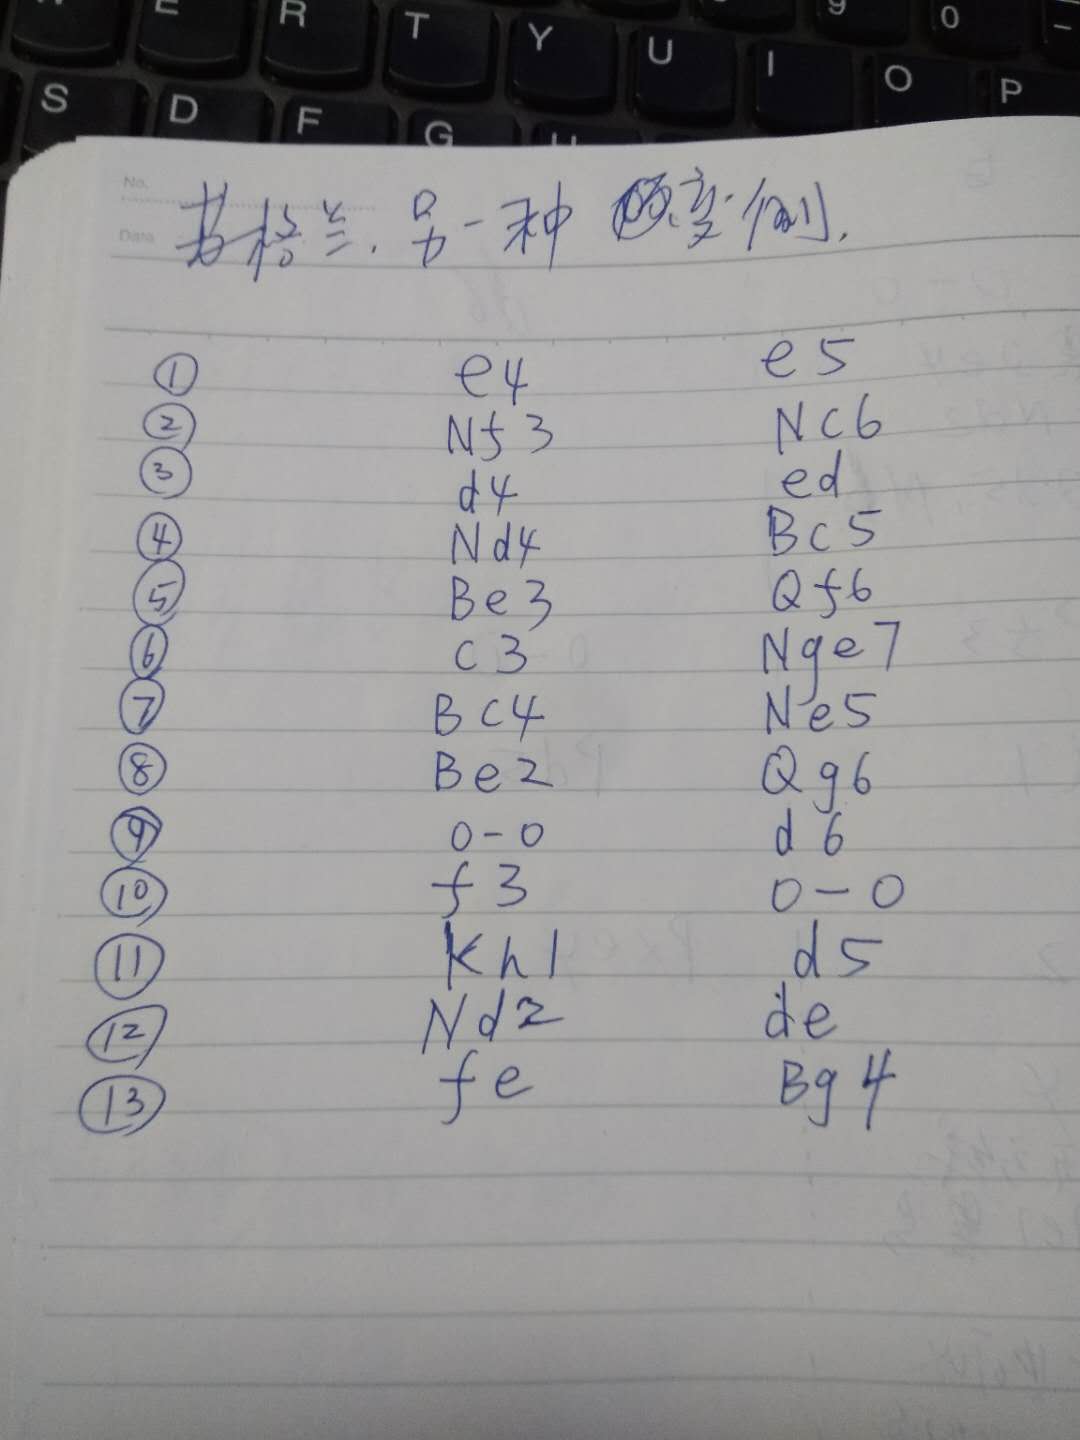 W E R T Y U I 9 O 0 P -
S D F G H
No.
Data
苏格兰.另一种 变例.
① e4 e5
② Nf3 Nc6
③ d4 ed
④ Nd4 Bc5
⑤ Be3 Qf6
⑥ c3 Nge7
⑦ Bc4 Ne5
⑧ Be2 Qg6
⑨ 0-0 d6
⑩ f3 0-0
⑪ Kh1 d5
⑫ Nd2 de
⑬ fe Bg4